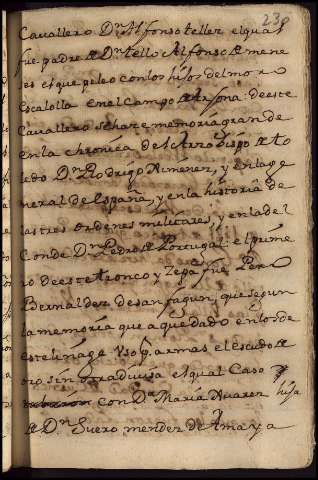 239
Cavallero Dn. Alfonso tellez elqual
fue padre de Dn. tello Alfonso de mene
ses el que peleo con los hijos del moro
escalolla en el Campo de Arsona: de este
Cavallero se haze memoria grande
en la chronica del Arzobispo de to
ledo Dn. Rodrigo Ximenez, y en la ge
neral de España, y en la historia de
las tres ordenes militares, y en la del
Conde Dn. Pedro de Portugal: el prime
ro de este tronco y Zepa fue Pero
Bernaldez de san fagun, que segun
la memoria que a quedado en los de
este linage uso pr. armas el escudo de
oro sin otra divisa el qual Caso
con Da. Maria Alvarez hija
de Dn. Suero mendez de Amaya